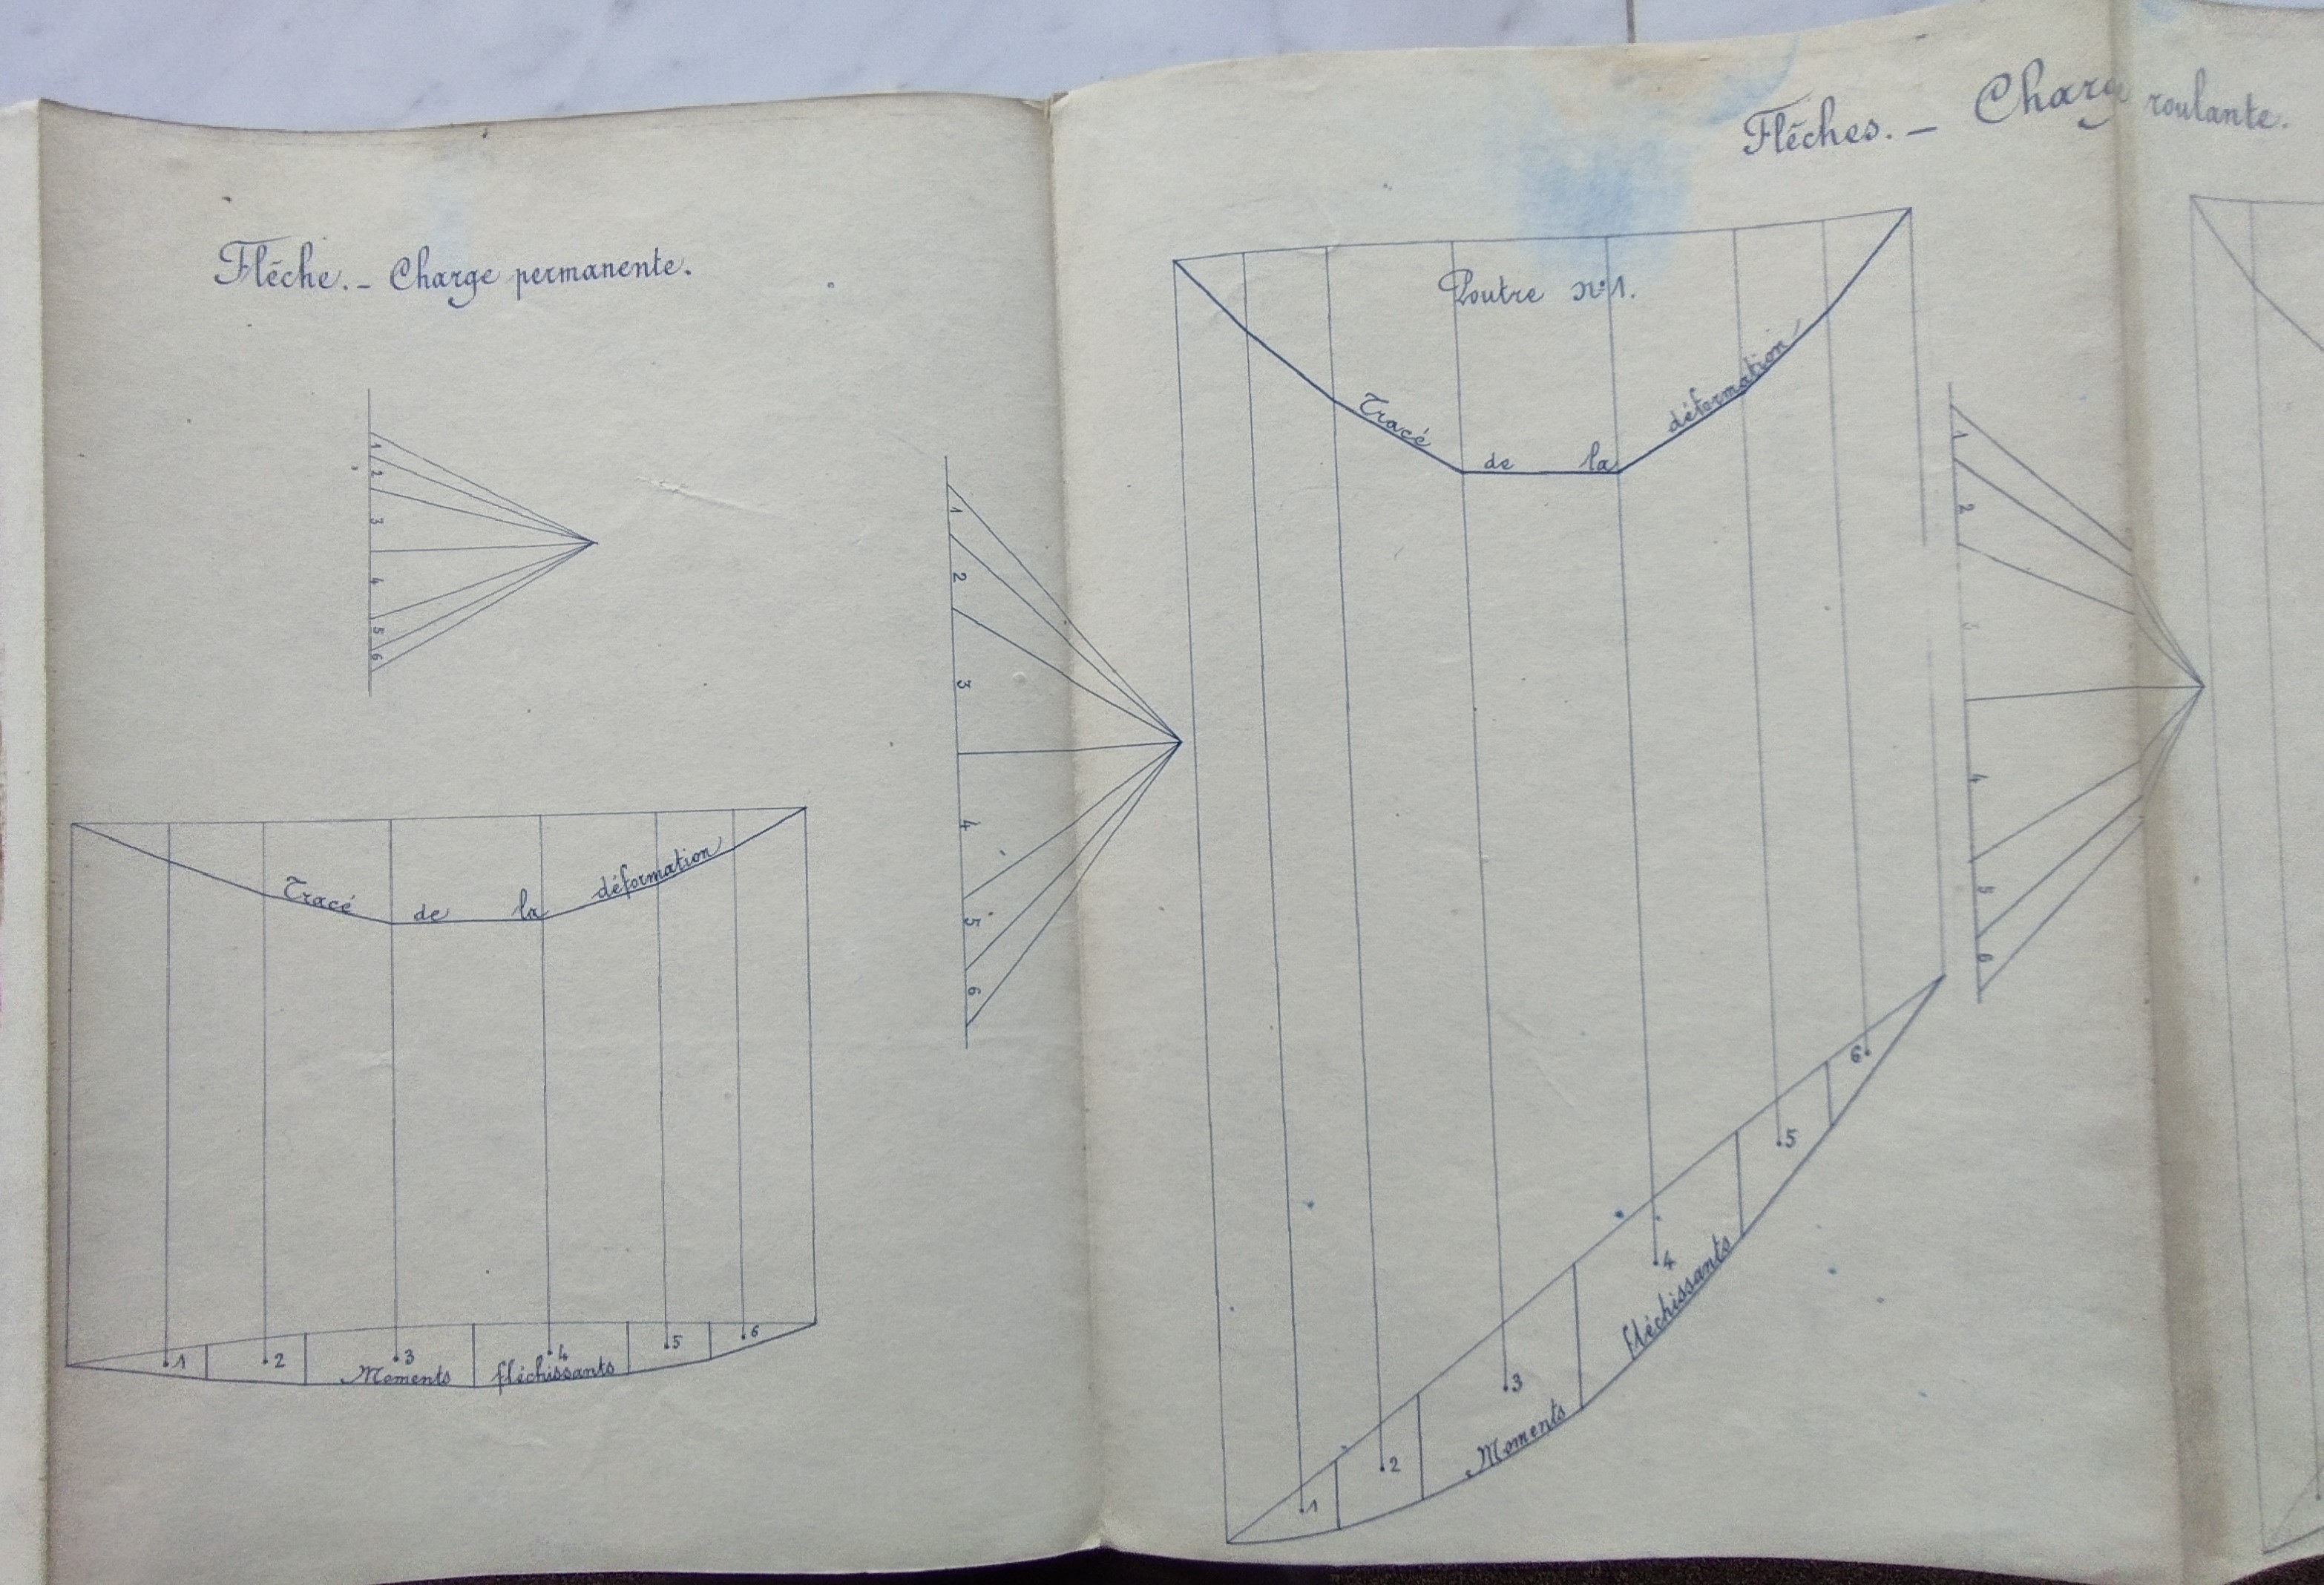 Flèche. - Charge permanente.
1
2
3
4
5
6
Tracé de la déformation
1 2 3 4 5 6
Moments fléchissants
Flèches. - Charge roulante.
1
2
3
4
5
6
Poutre n°1.
Tracé de la déformation
1 2 3 4 5 6
Moments fléchissants
1
2
3
4
5
6